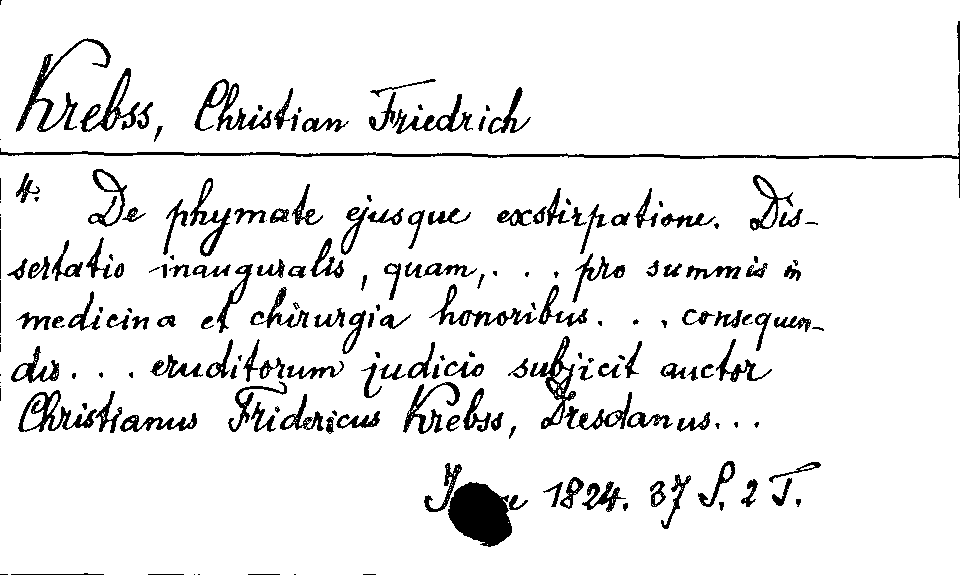 Krebss, Christian Friedrich
4. De phymate ejusque exstirpatione. Dis-
sertatio inauguralis, quam, . . . pro summis in
medicina et chirurgia honoribus . . . consequen-
dis . . . eruditorum judicio subjicit auctor
Christianus Fridericus Krebss, Dresdanus...
1824. 37 S. 2 T.